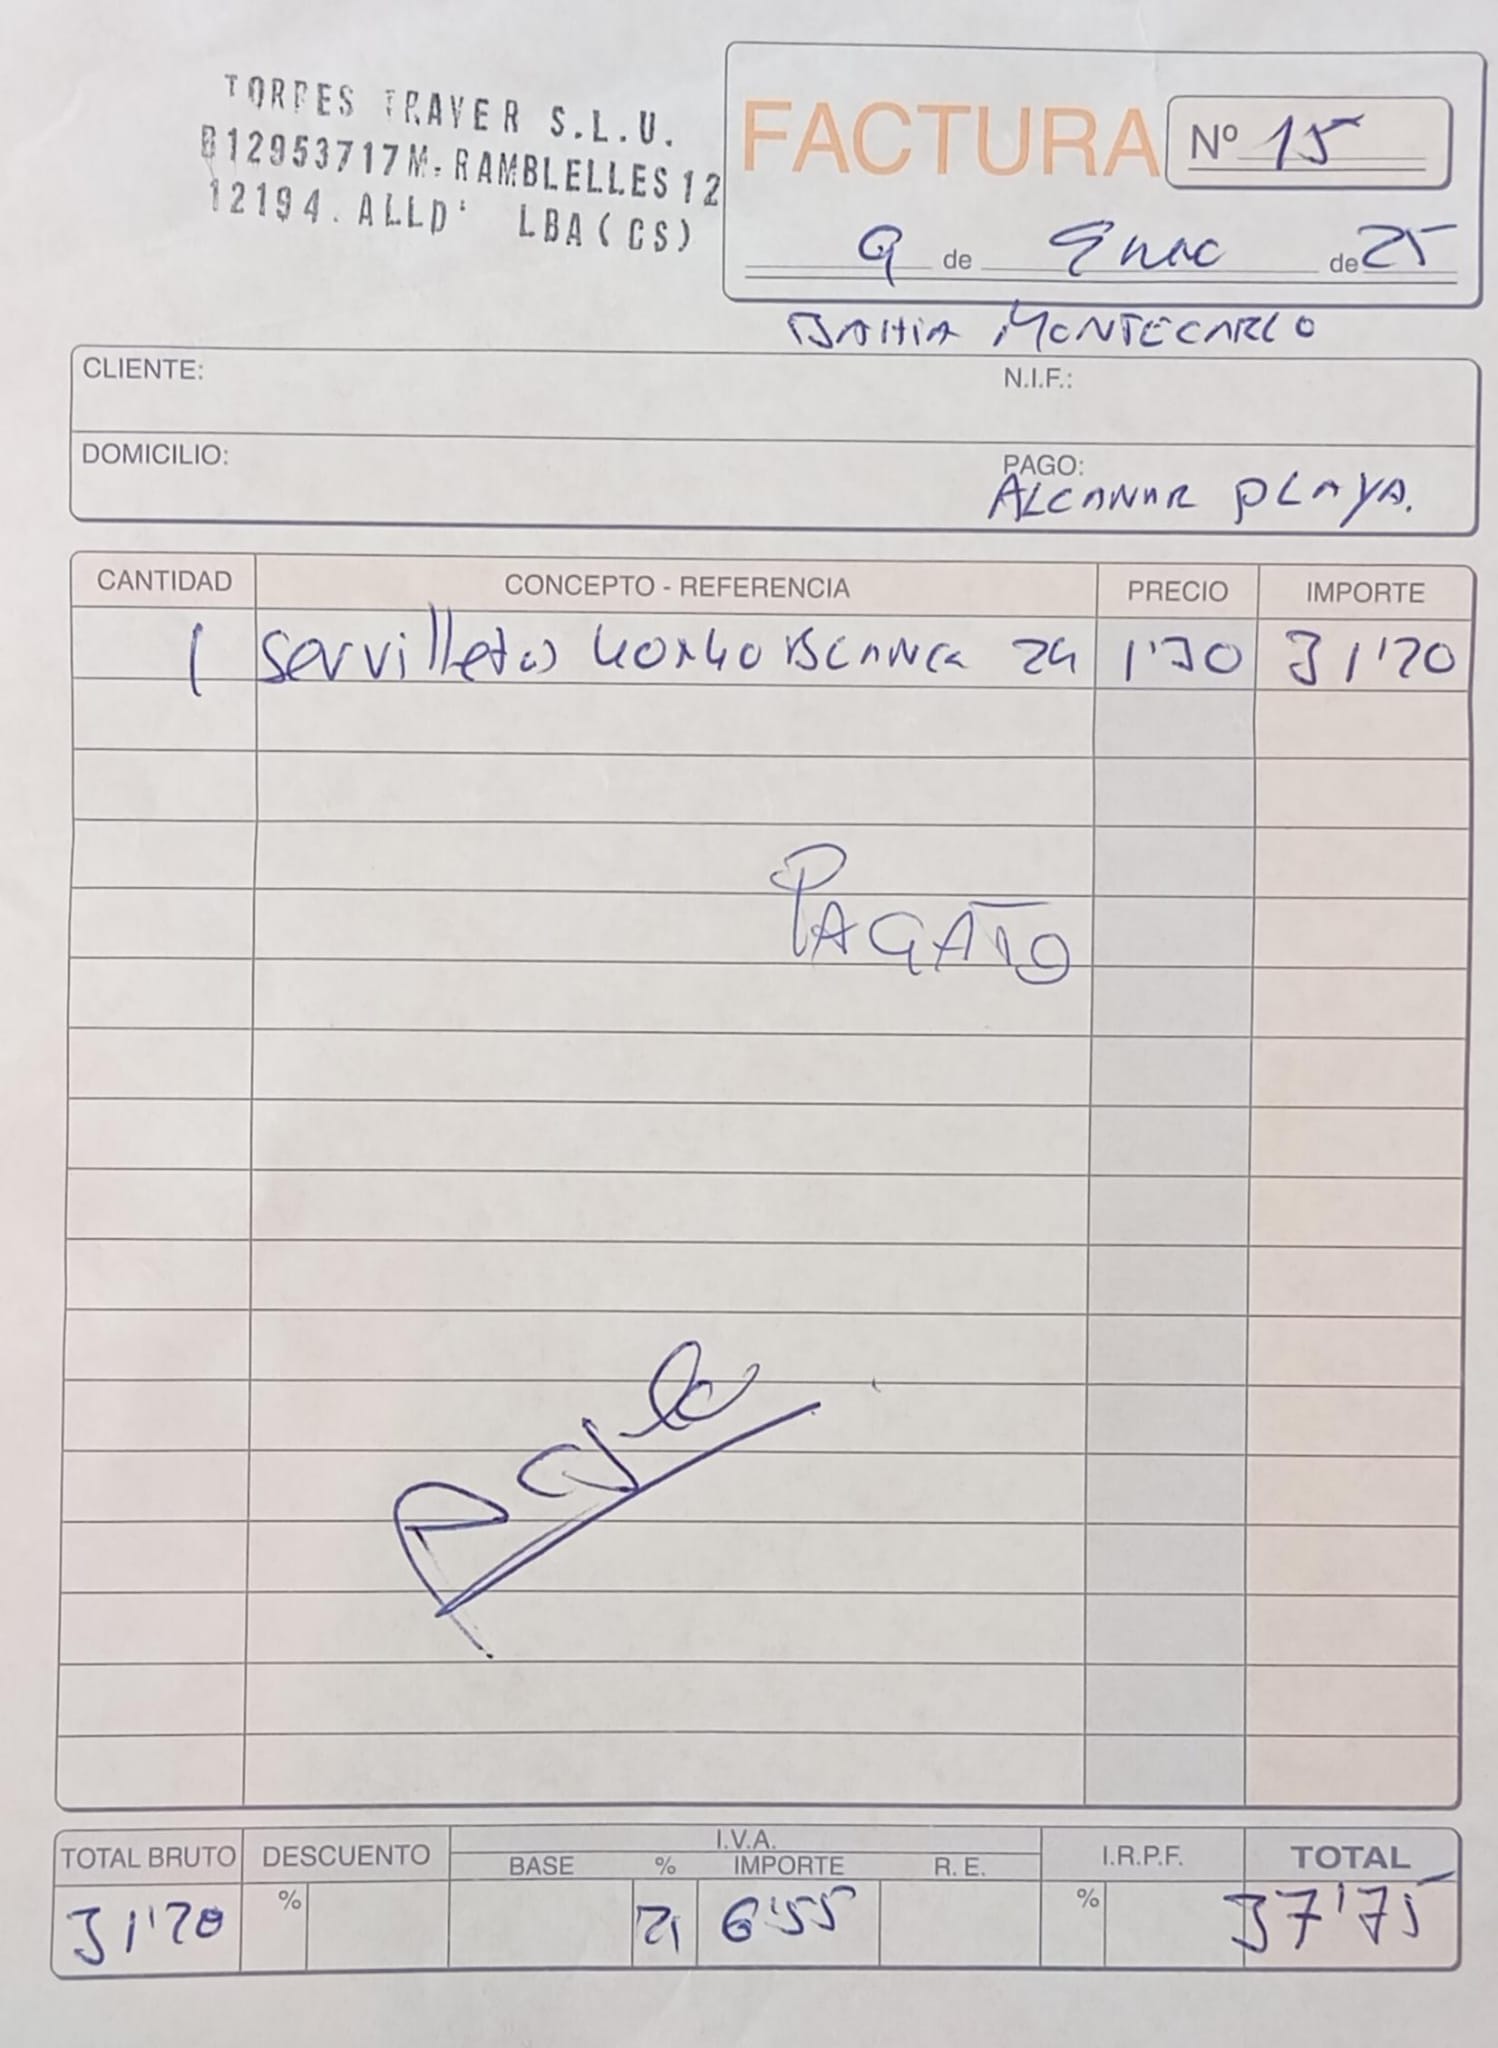 TORRES TRAVER S.L.U.
B12953717 M. RAMBLELLES 12
12194. ALLD' LBA (CS)
FACTURA Nº 15
9 de Enero de 25
BAHIA MONTECARLO
CLIENTE: N.I.F.:
DOMICILIO: PAGO:
ALCANAR PLAYA.
CANTIDAD CONCEPTO - REFERENCIA PRECIO IMPORTE
1 Servilletas 40x40 BLANCA 24 1'30 31'20
PAGATO
TOTAL BRUTO DESCUENTO I.V.A. I.R.P.F. TOTAL
BASE % IMPORTE R.E.
31'20 % 21 6'55 % 37'75